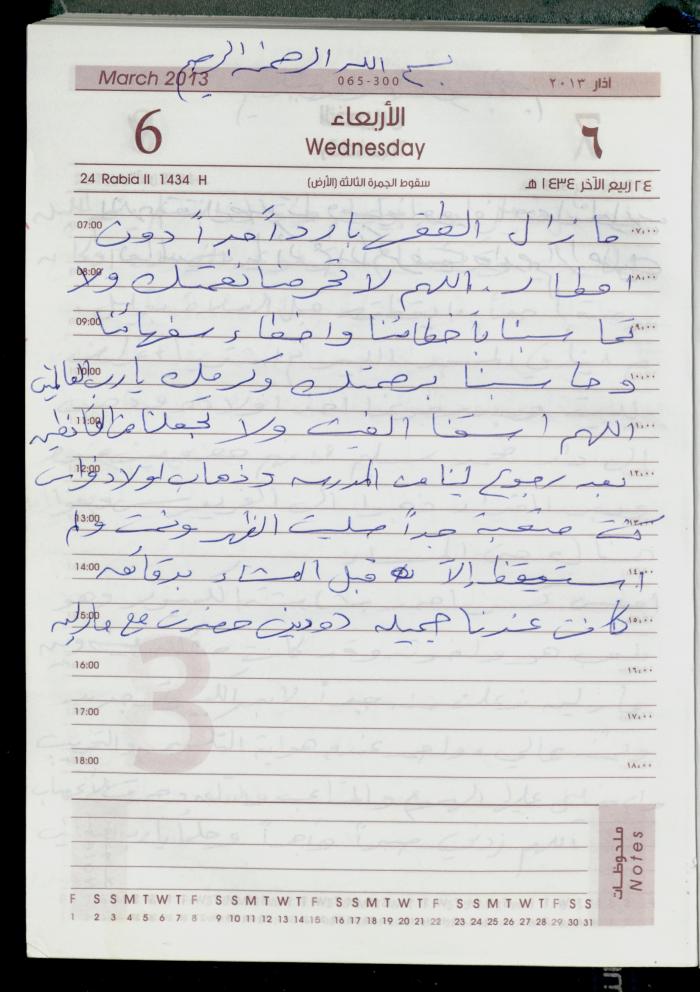 بسم الله الرحمن الرحيم
March 2013 065-300 اذار ٢٠١٣
6 الأربعاء ٦
Wednesday
24 Rabia II 1434 H سقوط الجمرة الثالثة (الأرض) ٢٤ ربيع الآخر ١٤٣٤ هـ
07:00 مازال الطقس بارداً جداً دون ٠٧:٠٠
08:00 امطار. اللهم لا تحرمنا نعمتك ولا ٠٨:٠٠
09:00 تحاسبنا بأخطائنا واخطاء سفهائنا ٠٩:٠٠
10:00 وحاسبنا برحمتك وكرمك يارب العالمين ١٠:٠٠
11:00 اللهم اسقنا الغيث ولا تجعلنا من القانطين ١١:٠٠
12:00 بعد رجوع لينا من المدرسه وذهاب اولاد فراس ١٢:٠٠
13:00 كنت متعبة جداً صليت الظهر ونمت ولم ١٣:٠٠
14:00 استيقظ إلا قبل العشاء بدقائق ١٤:٠٠
15:00 كانت عندنا جميله حضرت مع ١٥:٠٠
16:00 ١٦:٠٠
17:00 ١٧:٠٠
18:00 ١٨:٠٠
3
ملحوظات
Notes
F S S M T W T F S S M T W T F S S M T W T F S S M T W T F S S
1 2 3 4 5 6 7 8 9 10 11 12 13 14 15 16 17 18 19 20 21 22 23 24 25 26 27 28 29 30 31